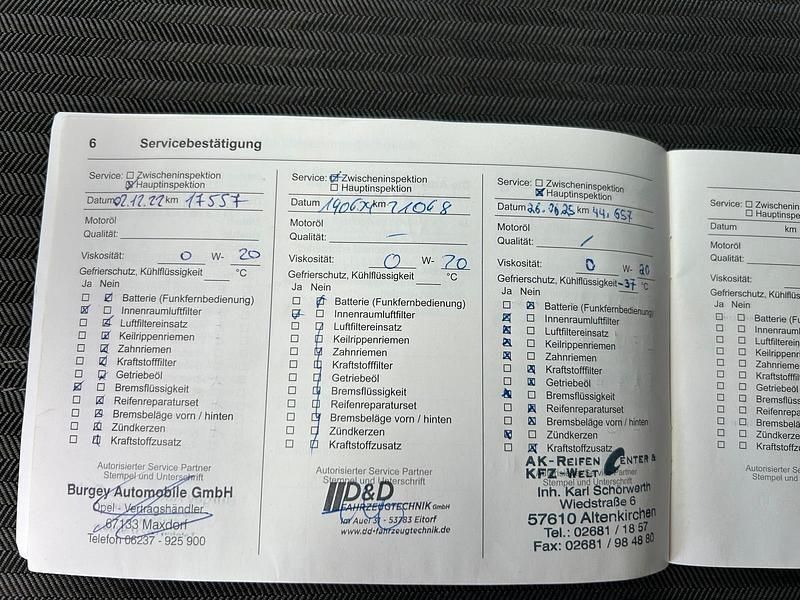 6 Servicebestätigung
Service: Zwischeninspektion
Hauptinspektion
Datum 02.12.22 km 17557
Motoröl
Qualität:
Viskosität: 0 W- 20
Gefrierschutz, Kühlflüssigkeit °C
Ja Nein
Batterie (Funkfernbedienung)
Innenraumluftfilter
Luftfiltereinsatz
Keilrippenriemen
Zahnriemen
Kraftstofffilter
Getriebeöl
Bremsflüssigkeit
Reifenreparaturset
Bremsbeläge vorn / hinten
Zündkerzen
Kraftstoffzusatz
Autorisierter Service Partner
Stempel und Unterschrift
Burgey Automobile GmbH
Opel - Vertragshändler
67133 Maxdorf
Telefon 06237 - 925 900
Service: Zwischeninspektion
Hauptinspektion
Datum km 21068
Motoröl
Qualität: —
Viskosität: 0 W- 20
Gefrierschutz, Kühlflüssigkeit °C
Ja Nein
Batterie (Funkfernbedienung)
Innenraumluftfilter
Luftfiltereinsatz
Keilrippenriemen
Zahnriemen
Kraftstofffilter
Getriebeöl
Bremsflüssigkeit
Reifenreparaturset
Bremsbeläge vorn / hinten
Zündkerzen
Kraftstoffzusatz
Autorisierter Service Partner
Stempel und Unterschrift
D&D
FAHRZEUGTECHNIK GmbH
Im Auer 31 - 53783 Eitorf
www.dd-fahrzeugtechnik.de
Service: Zwischeninspektion
Hauptinspektion
Datum km 44.657
Motoröl
Qualität: /
Viskosität: 0 W- 20
Gefrierschutz, Kühlflüssigkeit -37 °C
Ja Nein
Batterie (Funkfernbedienung
Innenraumluftfilter
Luftfiltereinsatz
Keilrippenriemen
Zahnriemen
Kraftstofffilter
Getriebeöl
Bremsflüssigkeit
Reifenreparaturset
Bremsbeläge vorn / hinten
Zündkerzen
Kraftstoffzusatz
Autorisierter Service Partner
Stempel und Unterschrift
AK-REIFEN CENTER &
KFZ-WELT
Inh. Karl Schörwerth
Wiedstraße 6
57610 Altenkirchen
Tel.: 02681 / 18 57
Fax: 02681 / 98 48 80
Service: Zwischeninspek
Hauptinspekti
Datum km
Motoröl
Qualität:
Viskosität:
Gefrierschutz, Kühlflüssi
Ja Nein
Batterie (Funk
Innenraumluft
Luftfilterein
Keilrippenrie
Zahnriemen
Kraftstofffilte
Getriebeöl
Bremsflüss
Reifenrepa
Bremsbelä
Zündkerze
Kraftstoffz
Autorisierter Se
Stempel und